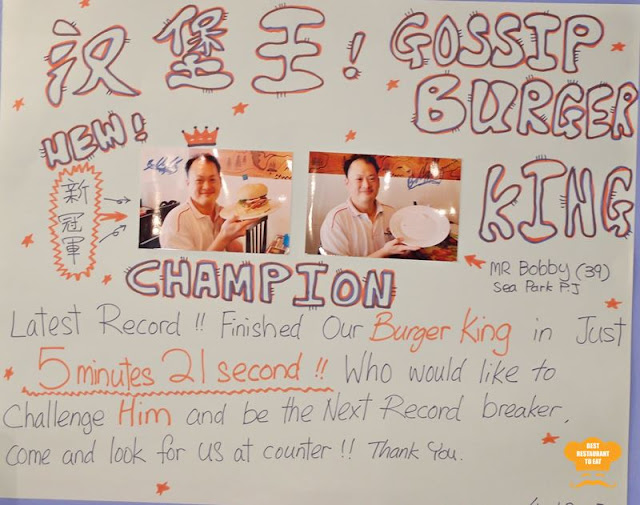 汉堡王! GOSSIP
BURGER
KING
NEW!
新冠軍
CHAMPION
MR BOBBY (39)
Sea Park P.J
Latest Record !! Finished Our Burger King in Just
5 minutes 21 second !! Who would like to
Challenge Him and be the Next Record breaker,
come and look for us at counter !! Thank You.
BEST
RESTAURANT
TO EAT